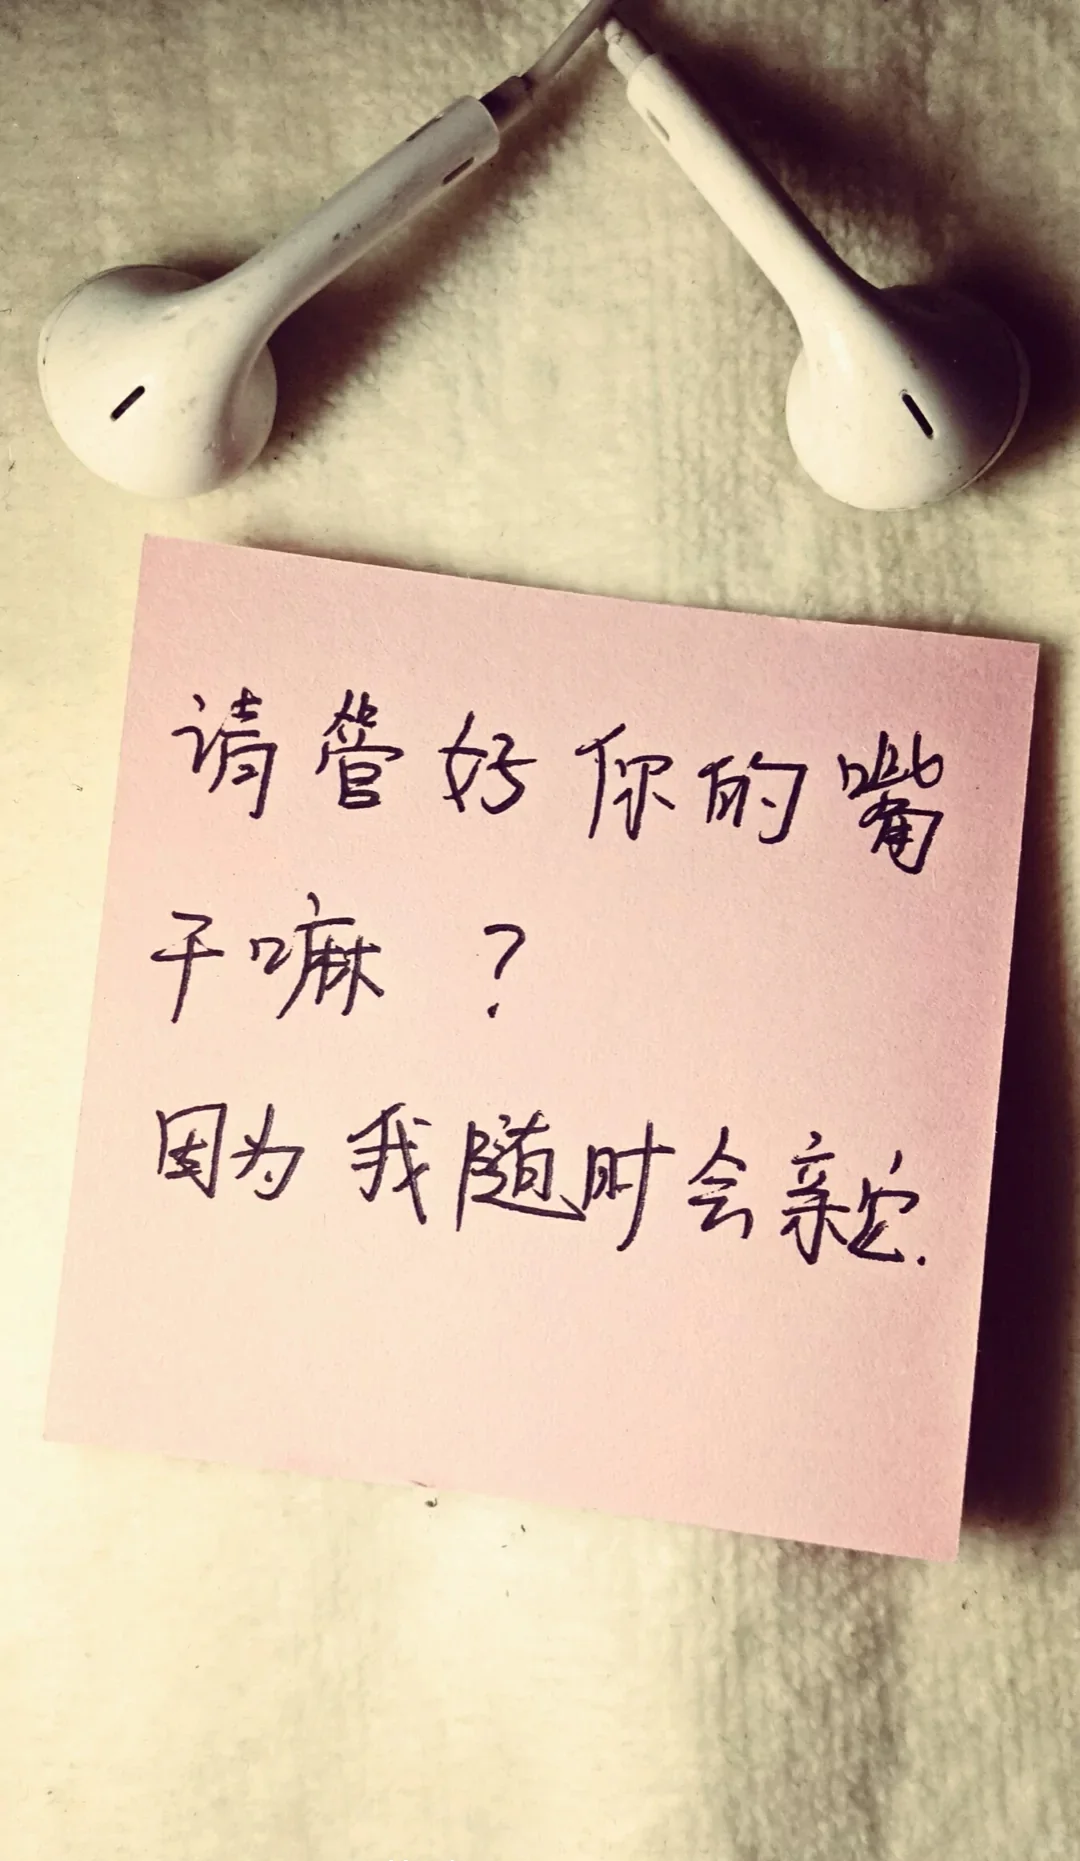 请管好你的嘴
干嘛？
因为我随时会亲它.